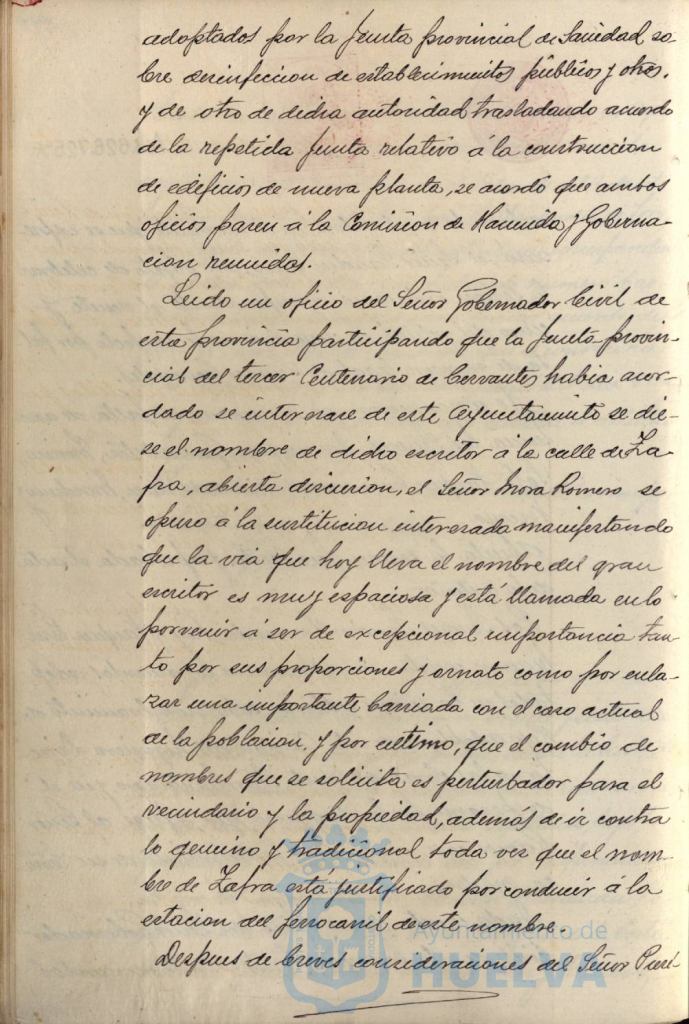 adoptados por la Junta provincial de Sanidad so-
bre desinfeccion de establecimientos públicos y otros,
y de otro de dicha autoridad trasladando acuerdo
de la repetida Junta relativo á la construccion
de edificios de nueva planta, se acordó que ambos
oficios pasen á la Comision de Hacienda y Goberna-
cion reunidas.
Leido un oficio del Señor Gobernador Civil de
esta provincia participando que la Junta provin-
cial del tercer Centenario de Cervantes habia acor-
dado se interesase de este Ayuntamiento se die-
se el nombre de dicho escritor á la calle de Za-
fra, abierta discusion, el Señor Mora Romero se
opuso á la sustitucion interesada manifestando
que la via que hoy lleva el nombre del gran
escritor es muy espaciosa y está llamada en lo
porvenir á ser de excepcional importancia tan-
to por sus proporciones y ornato como por enla-
zar una importante barriada con el caso actual
de la poblacion, y por ultimo, que el cambio de
nombres que se solicita es perturbador para el
vecindario y la propiedad, además de ir contra
lo genuino y tradicional toda vez que el nom-
bre de Zafra está justificado por conducir á la
estacion del ferrocarril de este nombre.
Despues de breves consideraciones del Señor
Ayuntamiento de
HUELVA